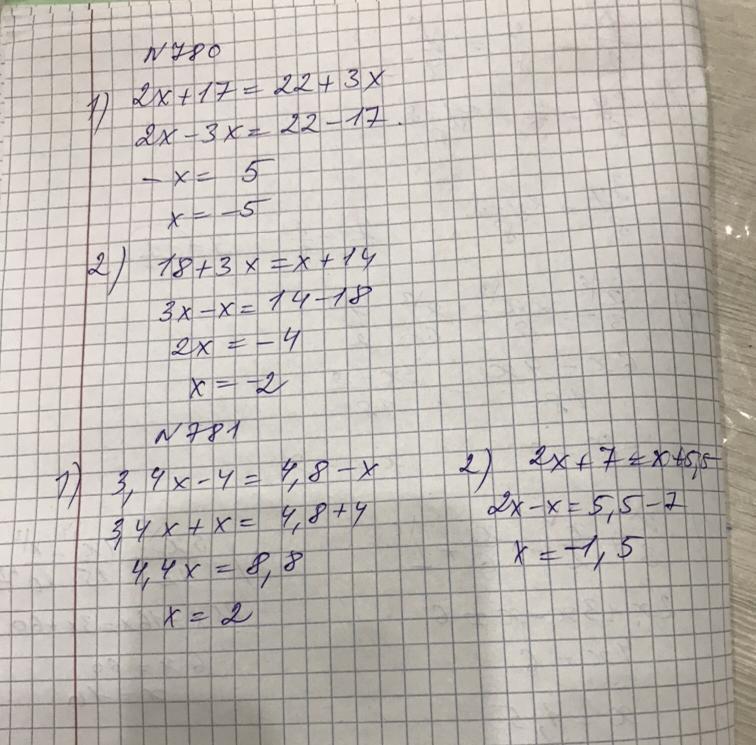 N780
1) 2x+17 = 22+3x
2x-3x = 22-17.
-x = 5
x = -5
2) 18+3x = x+14
3x-x = 14-18
2x = -4
x = -2
N781
1) 3,4x-4 = 4,8-x
3,4x+x = 4,8+4
4,4x = 8,8
x = 2
2) 2x+7 = x+5,5
2x-x = 5,5-7
x = -1,5